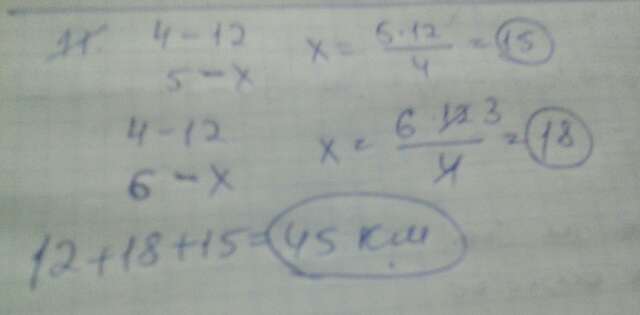 11. 4 - 12 x = 5·12/4 = 15
5 - x
4 - 12 x = 6·12 3/4 = 18
6 - x
12+18+15=45 км